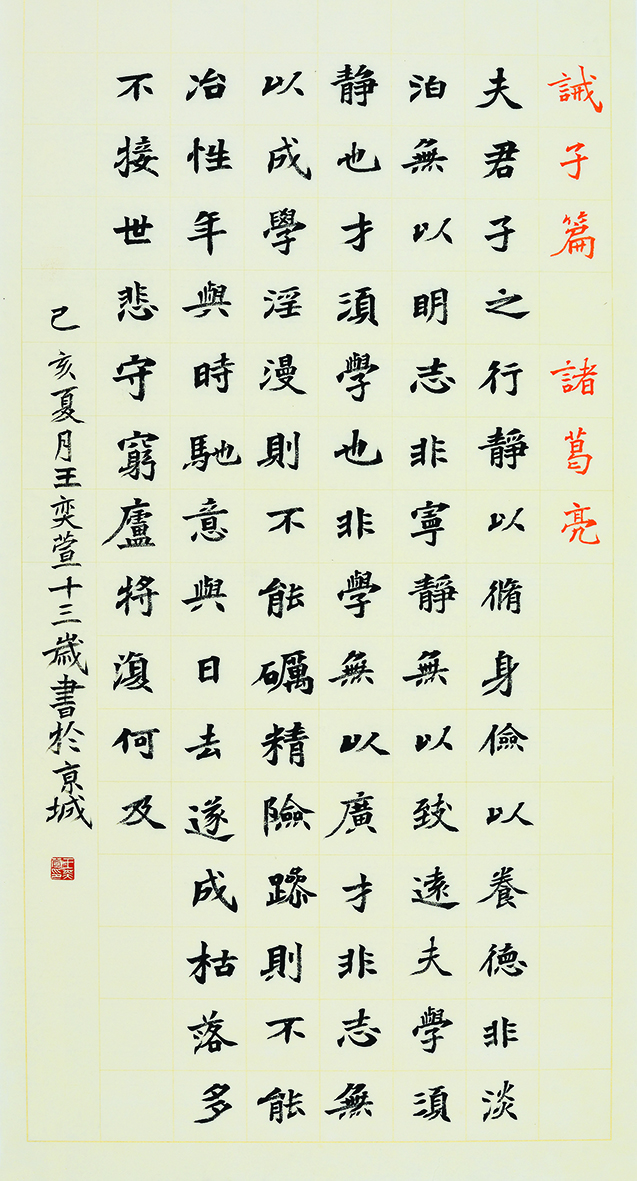 誡子篇 諸葛亮
夫君子之行靜以脩身儉以養德非淡
泊無以明志非寧靜無以致遠夫學須
靜也才須學也非學無以廣才非志無
以成學淫漫則不能礪精險躁則不能
冶性年與時馳意與日去遂成枯落多
不接世悲守窮廬將復何及
己亥夏月王奕萱十三歲書於京城
王奕萱印